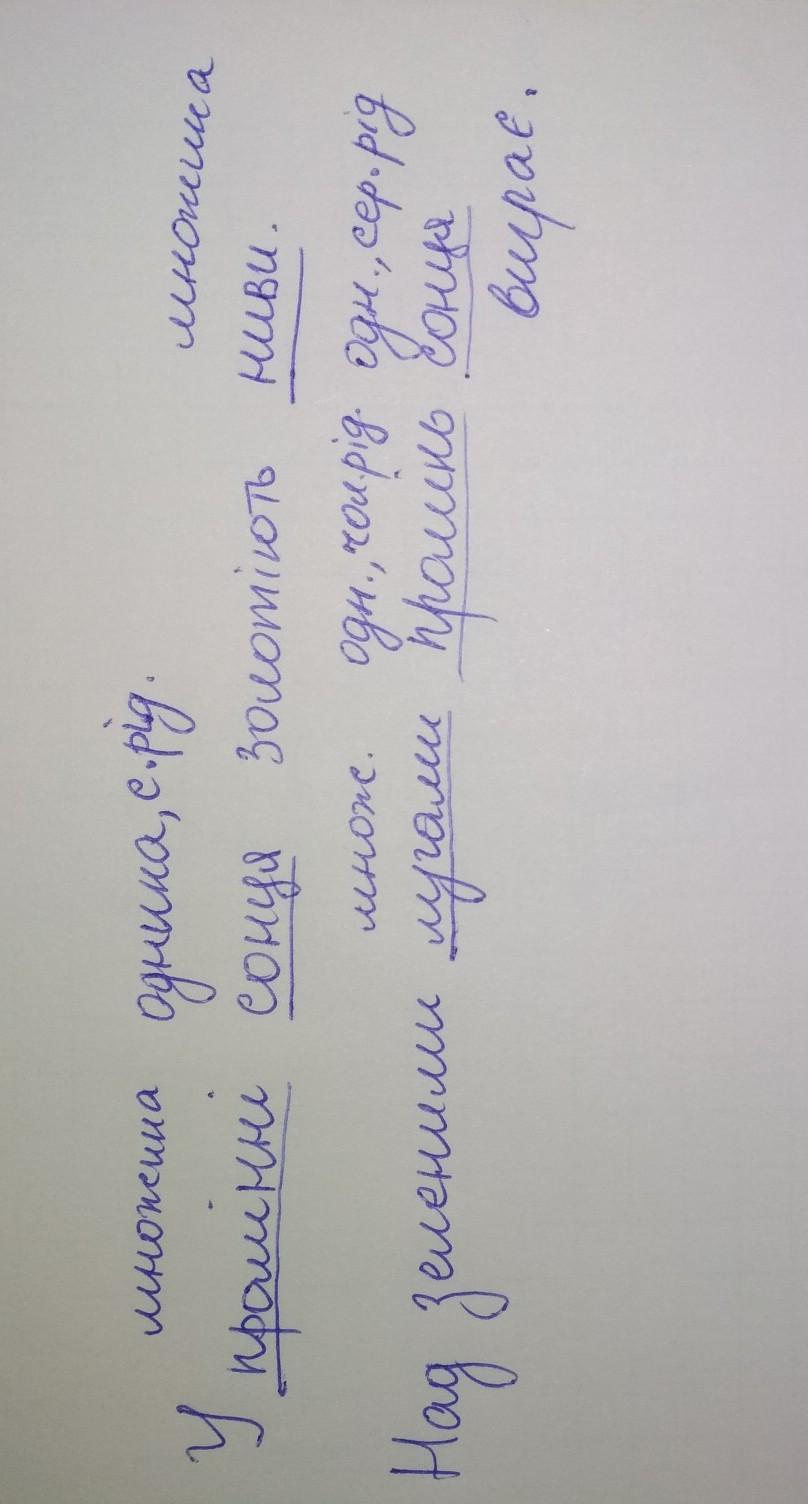 множина однина, с.рід. множина
У промінні сонця золотіють ниви.
множ. одн., чол.рід. одн., сер.рід
Над зеленими лугами промінь сонця
виграє.